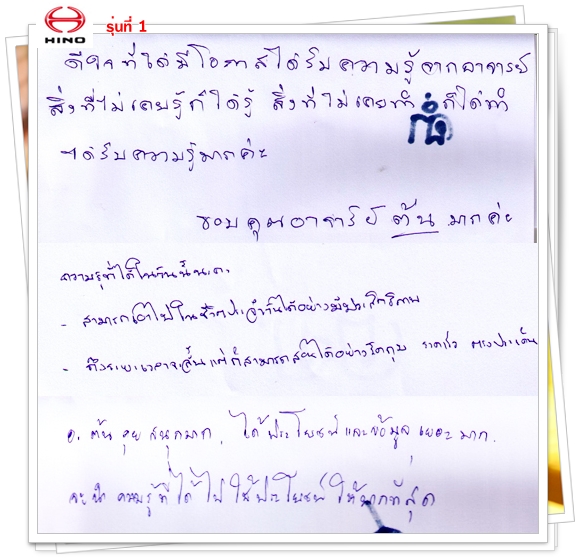 HINO รุ่นที่ 1
ดีใจที่ได้มีโอกาสได้รับความรู้จากอาจารย์
สิ่งที่ไม่เคยรู้ก็ได้รู้ สิ่งที่ไม่เคยทำ ก็ได้ทำ
ได้รับความรู้มากค่ะ
ขอบคุณอาจารย์ ต้น มากค่ะ
ความรู้ที่ได้ในวันนี้นะคะ
- สามารถนำไปใช้ในชีวิตประจำวันได้อย่างมีประสิทธิภาพ
- ถึงระยะเวลาจะสั้นแต่ก็สามารถสอนได้อย่างรัดกุม รวดเร็ว ตรงประเด็น
อ. ต้น คุย สนุกมาก, ได้ประโยชน์ และข้อมูล เยอะมาก.
จะนำ ความรู้ที่ได้ ไปใช้ประโยชน์ ให้มากที่สุด